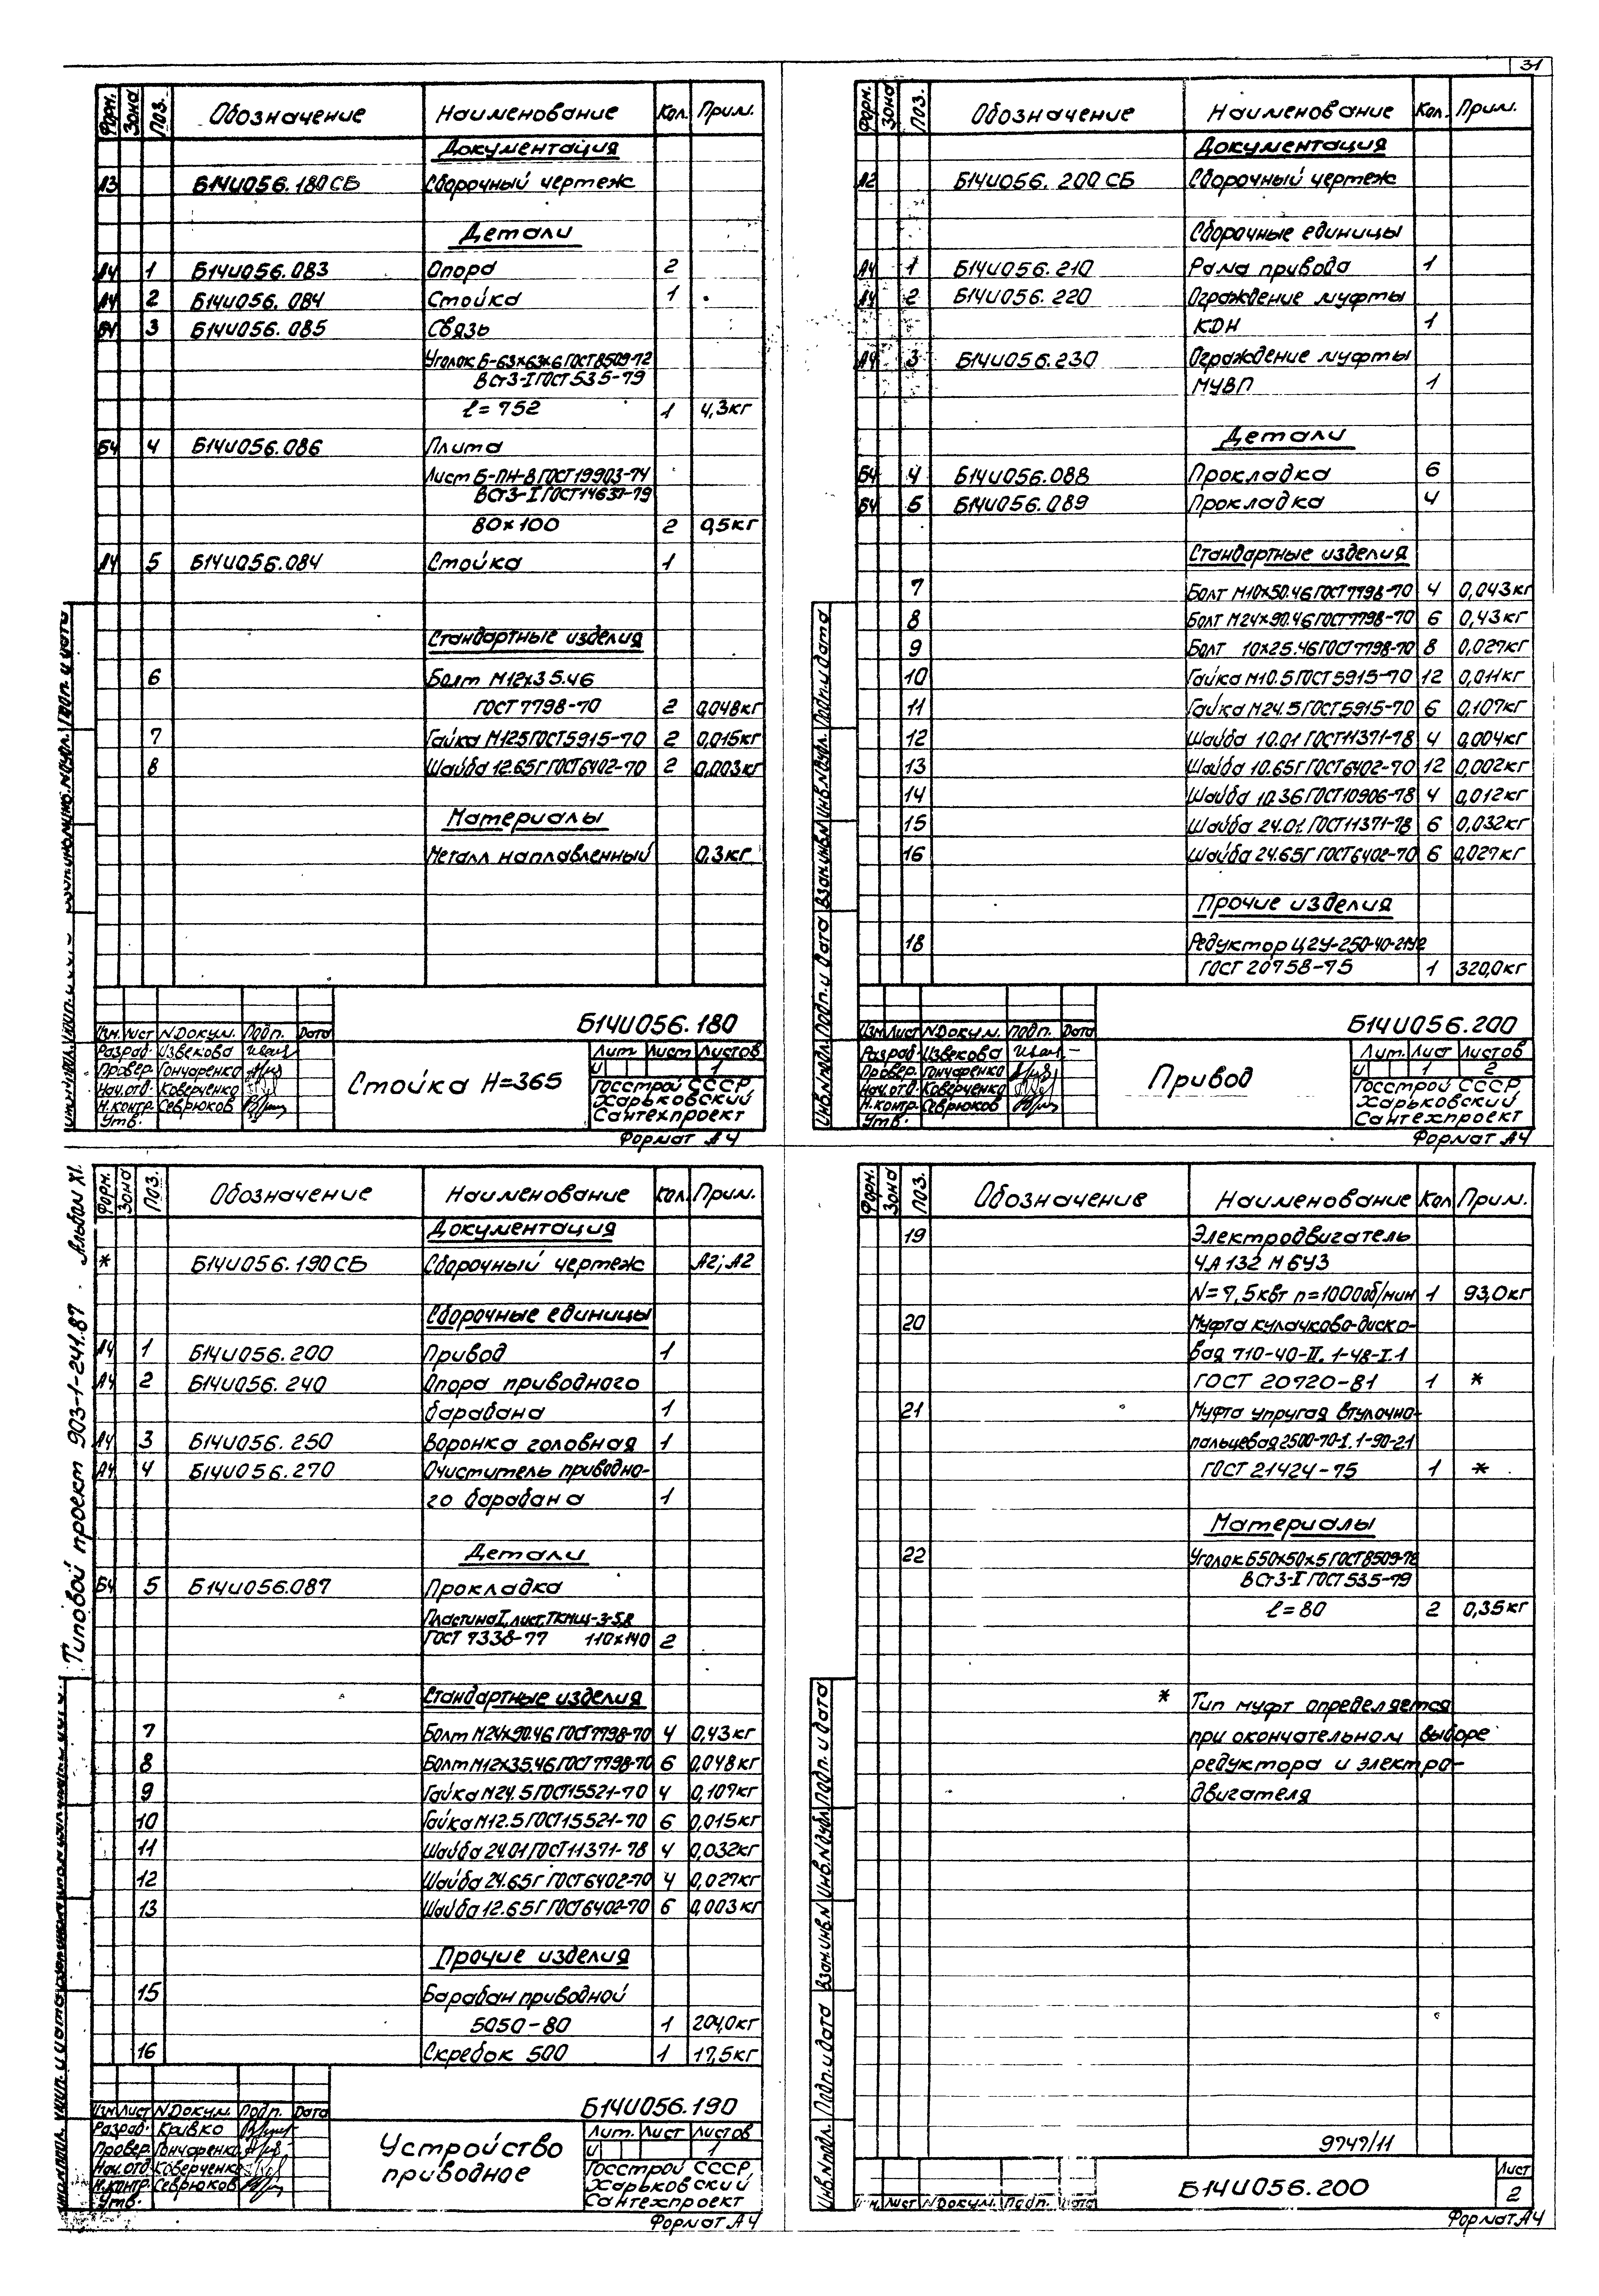 31
Форм. Зона Поз. Обозначение Наименование Кол. Прим.
Документация
А3 Б14И056.180СБ Сборочный чертеж
Детали
А4 1 Б14И056.083 Опора 2
А4 2 Б14И056.084 Стойка 1
Б4 3 Б14И056.085 Связь
Уголок Б-63х63х6 ГОСТ 8509-72
ВСт3-I ГОСТ 535-79
ℓ=752 1 4,3кг
Б4 4 Б14И056.086 Плита
Лист Б-ПН-8 ГОСТ 19903-74
ВСт3-I ГОСТ 14637-79
80х100 2 0,5кг
А4 5 Б14И056.084 Стойка 1
Стандартные изделия
6 Болт М12х35.46
ГОСТ 7798-70 2 0,048кг
7 Гайка М12.5 ГОСТ 5915-70 2 0,015кг
8 Шайба 12.65Г ГОСТ 6402-70 2 0,003кг
Материалы
Металл наплавленный 0,3кг
Б14И056.180
Изм. Лист N Докум. Подп. Дата
Разраб. Извекова
Провер. Гончаренко
Нач.отд. Коверченко
Н.контр. Севрюков
Утв.
Стойка Н=365
Лит. Лист Листов
И 1
Госстрой СССР
Харьковский
Сантехпроект
Формат А4
Форм. Зона Поз. Обозначение Наименование Кол. Прим.
Документация
А2 Б14И056.200СБ Сборочный чертеж
Сборочные единицы
А4 1 Б14И056.210 Рама привода 1
А4 2 Б14И056.220 Ограждение муфты
КДН 1
А4 3 Б14И056.230 Ограждение муфты
МУВП 1
Детали
Б4 4 Б14И056.088 Прокладка 6
Б4 5 Б14И056.089 Прокладка 4
Стандартные изделия
7 Болт М10х50.46 ГОСТ 7798-70 4 0,043кг
8 Болт М24х90.46 ГОСТ 7798-70 6 0,43кг
9 Болт 10х25.46 ГОСТ 7798-70 8 0,027кг
10 Гайка М10.5 ГОСТ 5915-70 12 0,011кг
11 Гайка М24.5 ГОСТ 5915-70 6 0,107кг
12 Шайба 10.01 ГОСТ 11371-78 4 0,004кг
13 Шайба 10.65Г ГОСТ 6402-70 12 0,002кг
14 Шайба 10.36 ГОСТ 10906-78 4 0,012кг
15 Шайба 24.01 ГОСТ 11371-78 6 0,032кг
16 Шайба 24.65Г ГОСТ 6402-70 6 0,027кг
Прочие изделия
18 Редуктор Ц2У-250-40-21У2
ГОСТ 20758-75 1 320,0кг
Б14И056.200
Изм. Лист N Докум. Подп. Дата
Разраб. Извекова
Провер. Гончаренко
Нач.отд. Коверченко
Н.контр. Севрюков
Утв.
Привод
Лит. Лист Листов
И 1 2
Госстрой СССР
Харьковский
Сантехпроект
Формат А4
Инв.N подл. Подп. и дата Взам.инв.N Инв.N дубл. Подп. и дата
Типовой проект 903-1-241.87 Альбом XI.
Форм. Зона Поз. Обозначение Наименование Кол. Прим.
Документация
* Б14И056.190СБ Сборочный чертеж А2; А2
Сборочные единицы
А4 1 Б14И056.200 Привод 1
А4 2 Б14И056.240 Опора приводного
барабана 1
А4 3 Б14И056.250 Воронка головная 1
А4 4 Б14И056.270 Очиститель приводно-
го барабана 1
Детали
Б4 5 Б14И056.087 Прокладка
Пластина I, лист, ТКМЩ-3-5,8
ГОСТ 7338-77 110х140 2
Стандартные изделия
7 Болт М24х90.46 ГОСТ 7798-70 4 0,43кг
8 Болт М12х35.46 ГОСТ 7798-70 6 0,048кг
9 Гайка М24.5 ГОСТ 15521-70 4 0,107кг
10 Гайка М12.5 ГОСТ 15521-70 6 0,015кг
11 Шайба 24.01 ГОСТ 11371-78 4 0,032кг
12 Шайба 24.65Г ГОСТ 6402-70 4 0,027кг
13 Шайба 12.65Г ГОСТ 6402-70 6 0,003кг
Прочие изделия
15 Барабан приводной
5050-80 1 204,0кг
16 Скребок 500 1 17,5кг
Б14И056.190
Изм. Лист N Докум. Подп. Дата
Разраб. Кривко
Провер. Гончаренко
Нач.отд. Коверченко
Н.контр. Севрюков
Утв.
Устройство
приводное
Лит. Лист Листов
И 1
Госстрой СССР
Харьковский
Сантехпроект
Формат А4
Форм. Зона Поз. Обозначение Наименование Кол Прим.
19 Электродвигатель
4А 132 М 6У3
N=7,5квт n=1000об/мин 1 93,0кг
20 Муфта кулачково-диско-
вая 710-40-II.1-48-I.1
ГОСТ 20720-81 1 *
21 Муфта упругая втулочно-
пальцевая 2500-70-I.1-90-21
ГОСТ 21424-75 1 *
Материалы
22 Уголок Б50х50х5 ГОСТ 8509-72
ВСт3-I ГОСТ 535-79
ℓ=80 2 0,35кг
* Тип муфт определяется
при окончательном выборе
редуктора и электро-
двигателя
9747/11
Изм. Лист N Докум. Подп. Дата
Б14И056.200
Лист
2
Формат А4
Инв.N подл. Подп. и дата Взам.инв.N Инв.N дубл. Подп. и дата